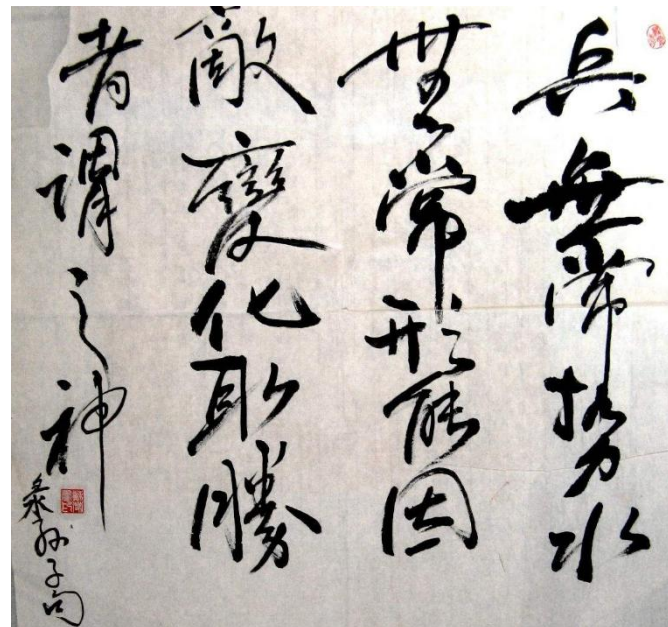 兵無常勢水
無常形能因
敵變化取勝
者謂之神
孫子句